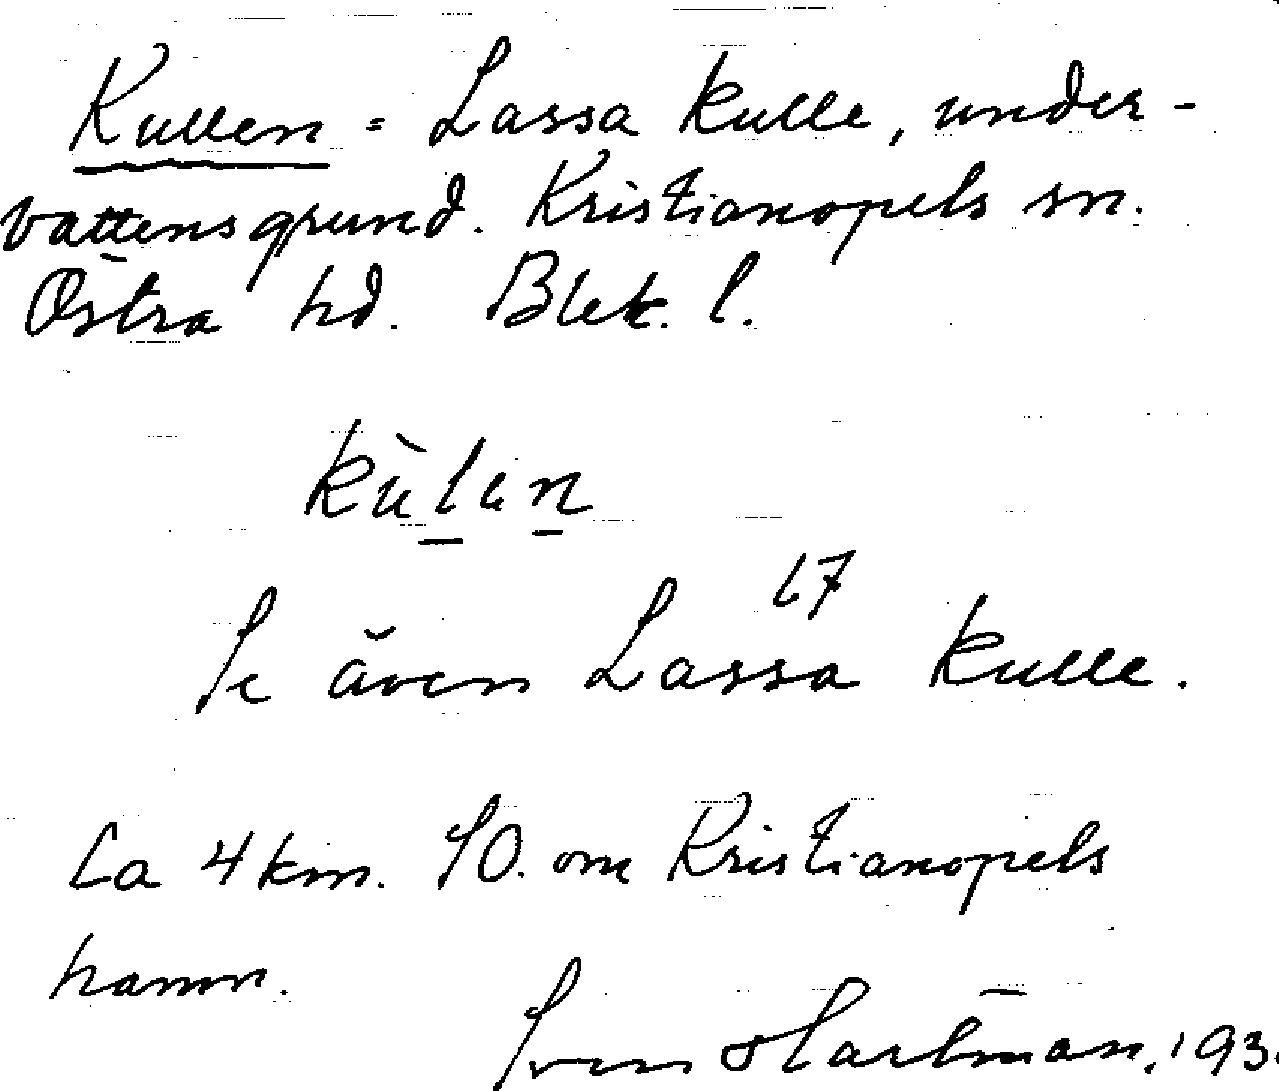 Kullen = Lassa kulle, under-
vattensgrund. Kristianopels sn.
Östra hd. Blek. l.
kùlen
17
Se även Lassa kulle.
Ca 4 km. SO. om Kristianopels
hamn.
Sven Hartman, 193.